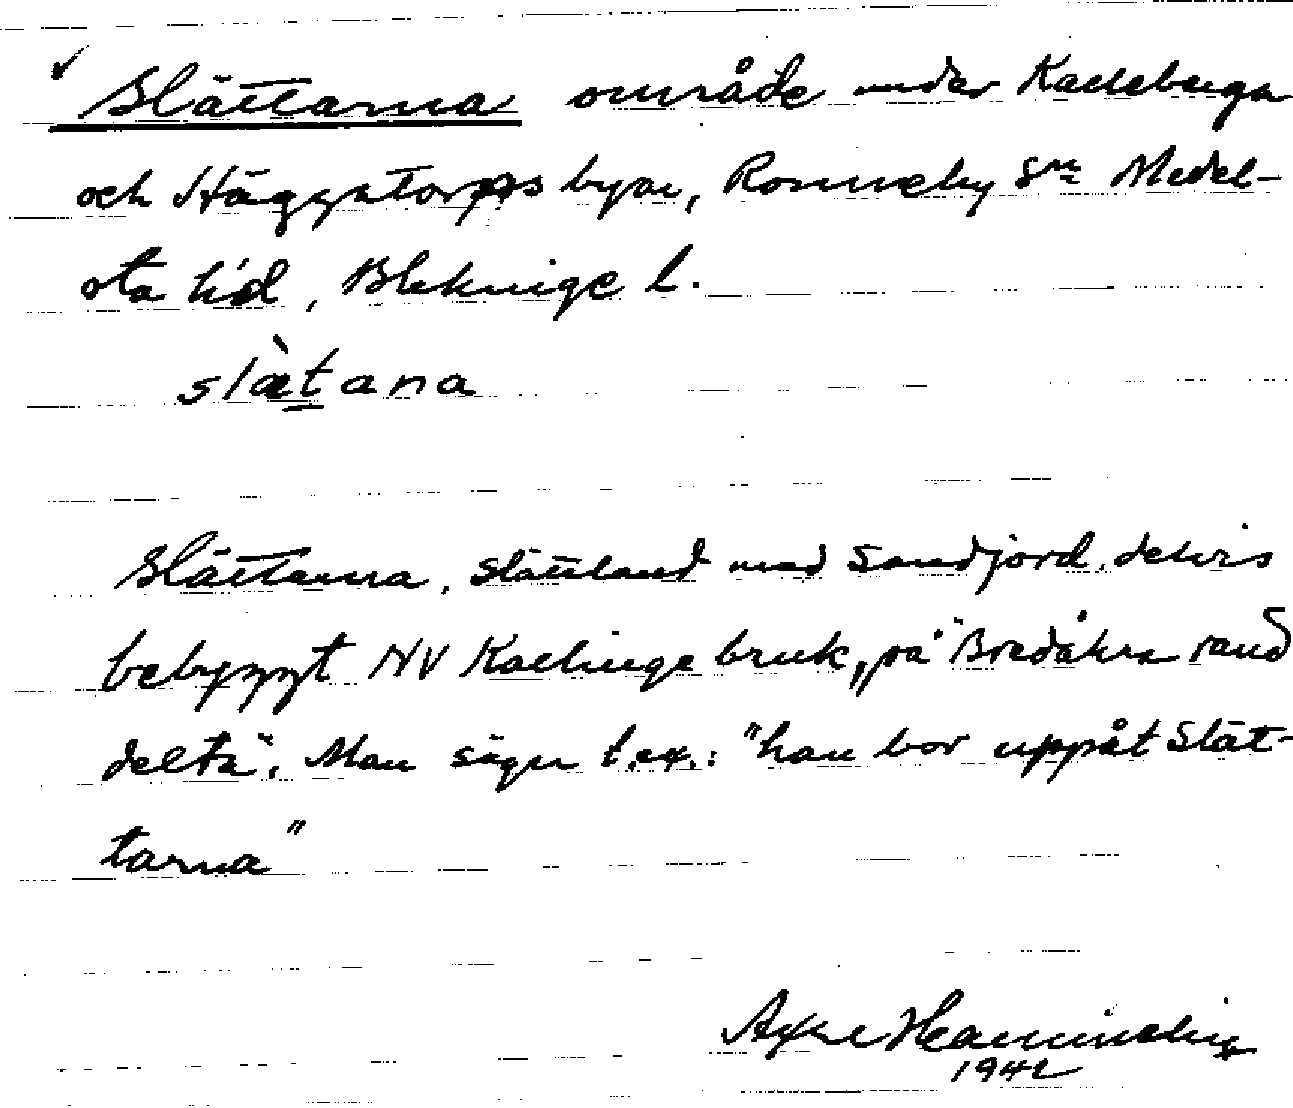 Slättarna område under Kalleberga
och Häggatorps byar, Ronneby sn Medel-
sta hd, Blekinge l.
slætana
Slättarna, slättland med sandjord, delvis
bebyggt NV Kallinge bruk, "på Bredåkra rand
delta". Man säger t.ex.: "han bor uppåt Slät-
tarna"
Axel
1942